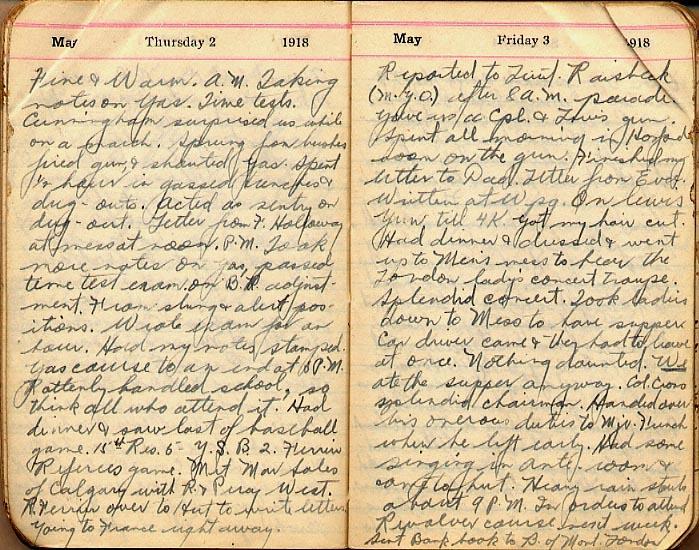 May Thursday 2 1918
Fine & Warm. A.M. Taking
notes on Gas. Time tests.
Cunningham surprised us while
on a march. Sprung from bushes
fired gun & shouted Gas. Spent
½ hour in gassed trenches &
dug-outs. Acted as sentry on
dug-out. Letter from F. Holloway
at mess at noon. P.M. Took
more notes on gas, passed
time test exam. on B.R. adjust-
ment. From slung & alert pos-
itions. Wrote exam for an
hour. Had my notes stamped.
Gas course to an end at P.M.
Rottenly handled school, so
think all who attend it. Had
dinner & saw last of baseball
game. 15th Res. 6 - Y.S.B. 2.
Referees game. Met Mar Sales
of Calgary with R. & Percy West.
R. over to Hut to write letters
going to France right away.
May Friday 3 1918
Reported to Lieut. Raisbeck
(M.G.O.) after 8 A.M. parade
Gave us a Cpl. & Lewis gun.
Spent all morning in
room on the gun. Finished my
letter to Dad. Letter from
Written at Wpg. On Lewis
Gun till 4. Got my hair cut.
Had dinner & dressed & went
up to Men's mess to hear the
London lady's concert troupe.
Splendid concert. Took ladies
down to Mess to have supper
Car driver came & they had to leave
at once. Nothing daunted. We
ate the supper anyway. Col. Cross
splendid chairman. Handed over
his onerous duties to Maj.
when he left early. Had some
singing in ante-room &
to hut. Heavy rain starts
about 9 P.M. In orders to attend
Revolver course next week.
Sent Bank book to B. of Mont. London